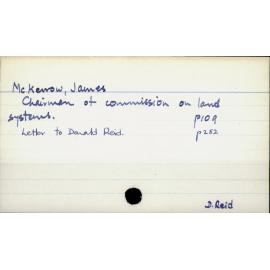 McKerrow, James
Chairman of commission on land
systems. p109
Letter to Donald Reid. p252
D. Reid